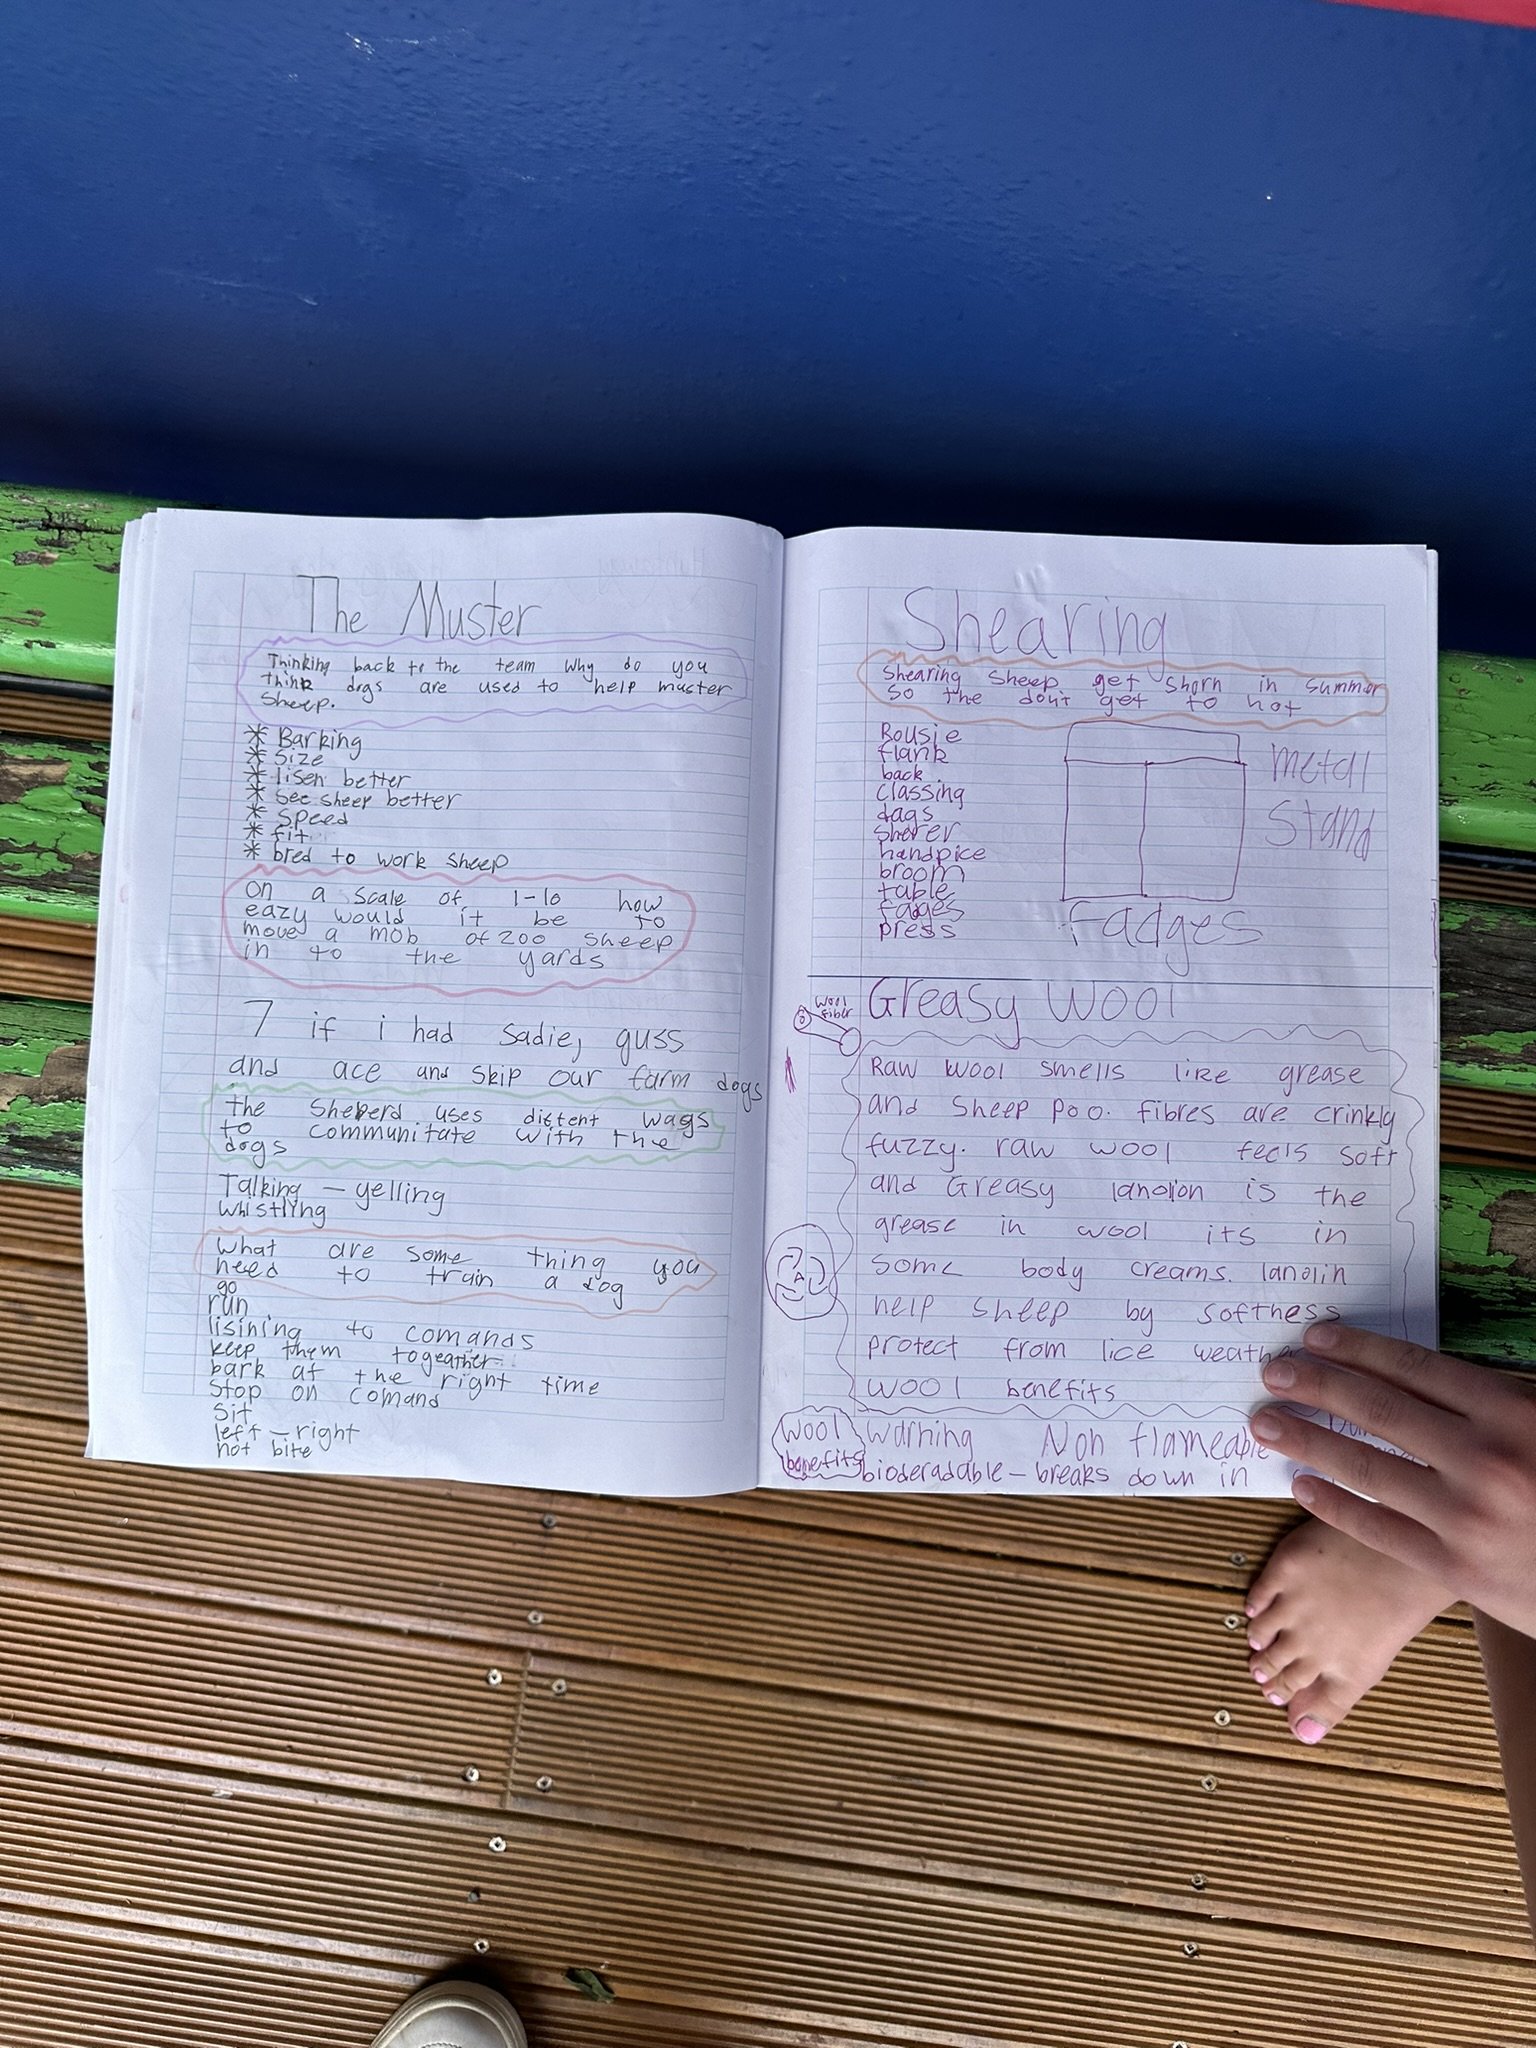 The Muster
Thinking back to the team why do you
think dogs are used to help muster
sheep.
* Barking
* size
* lisen better
* see sheep better
* speed
* fit
* bred to work sheep
On a scale of 1-10 how
eazy would it be to
move a mob of 200 sheep
in to the yards
7 if i had sadie, guss
and ace and skip our farm dogs
the sheperd uses diffent ways
to communitate with the
dogs
Talking - yelling
whistling
what are some thing you
need to train a dog
go
run
lisining to comands
keep them togeather
bark at the right time
stop on comand
sit
left - right
not bite
Shearing
shearing sheep get shorn in summer
so the don't get to hot
Rousie
flank
back
classing
dags
sherer
handpice
broom
table
fadges
press
metal
stand
fadges
Greasy Wool
wool
fiber
Raw wool smells like grease
and sheep poo. fibres are crinkly
fuzzy. raw wool feels soft
and Greasy lanolion is the
grease in wool its in
some body creams. lanolin
help sheep by softness
protect from lice
wool benefits
wool
benefits
warning Non flameable
bioderadable - breaks down in